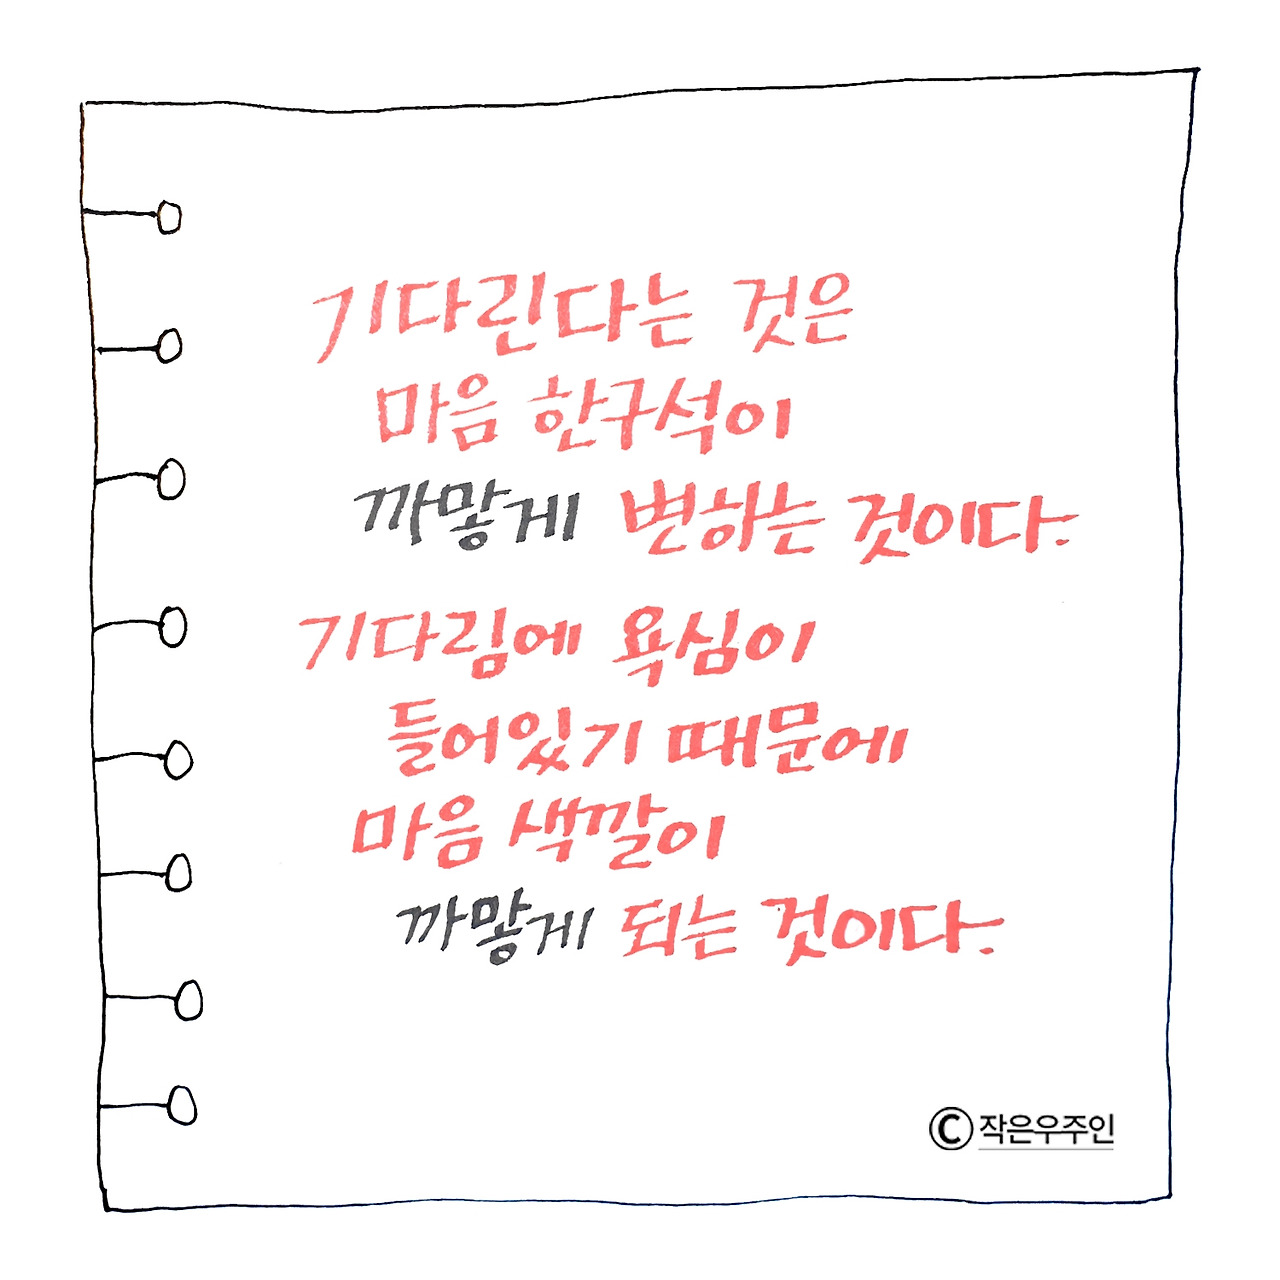 기다린다는 것은
마음 한구석이
까맣게 변하는 것이다.
기다림에 욕심이
들어있기 때문에
마음 색깔이
까맣게 되는 것이다.
ⓒ작은우주인